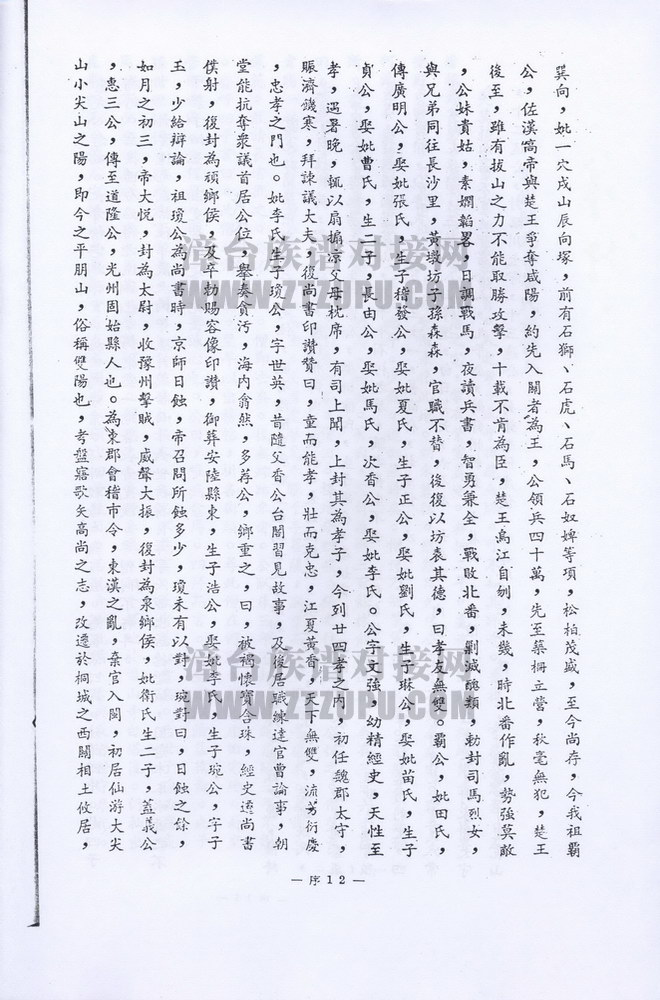 巽向，妣一穴戌山辰向塚，前有石獅、石虎、石馬、石奴婢等項，松柏茂盛，至今尚存，今我祖霸
公，佐漢高帝與楚王爭奪咸陽，約先入關者為王，公領兵四十萬，先至築柵立營，秋毫無犯，楚王
後至，雖有拔山之力不能取勝攻擊，十載不肯為臣，楚王烏江自刎，未幾，時北番作亂，勢強莫敵
，公妹貴姑，素嫺韜畧，日調戰馬，夜讀兵書，智勇兼全，戰敗北番，剿滅醜類，勅封司馬烈女，
與兄弟同往長沙里，黃墩坊子孫森森，官職不替，後復以坊表其德，曰孝友無雙。霸公，妣田氏，
傳廣明公，娶妣張氏，生子稽發公，娶妣夏氏，生子正公，娶妣劉氏，生子琳公，娶妣苗氏，生子
貞公，娶妣曹氏，生二子，長由公，娶妣馬氏，次香公，娶妣李氏。公字文強，幼精經史，天性至
孝，遇暑晚，輒以扇搧凉父母枕席，有司上聞，上封其為孝子，今列廿四孝之內，初任魏郡太守，
賑濟饑寒，拜諫議大夫，復尚書印讚贊曰，童而能孝，壯而克忠，江夏黃香，天下無雙，流芳衍慶
，忠孝之門也。妣李氏生子瓊公，字世英，昔隨父香公台閣習見故事，及後居職練達官曹論事，朝
堂能抗奪衆議首居公位，舉奏貪污，海内翕然，多荐公，鄉重之，曰，被褐懷寶合珠，經史遷尚書
僕射，復封為頑鄉侯，及卒勅賜容像印讚，御葬安陸縣東，生子浩公，娶妣李氏，生子琬公，字子
玉，少給辯論，祖瓊公為尚書時，京師日蝕，帝召問所蝕多少，瓊未有以對，琬對曰，日蝕之餘，
如月之初三，帝大悦，封為太尉，收豫州擊賊，威聲大振，復封為泉鄉侯，妣衛氏生二子，蓋義公
，惠三公，傳至道隆公，光州固始縣人也。為東郡會稽市令，東漢之亂，棄官入閩，初居仙游大尖
山小尖山之陽，即今之平朋山，俗稱雙陽也，考盤寤歌矢高尚之志，改遷於桐城之西關相土攸居，
—序12—
漳台族谱对接网
WWW.ZTZUPU.COM
漳台族谱对接网
WWW.ZTZUPU.COM